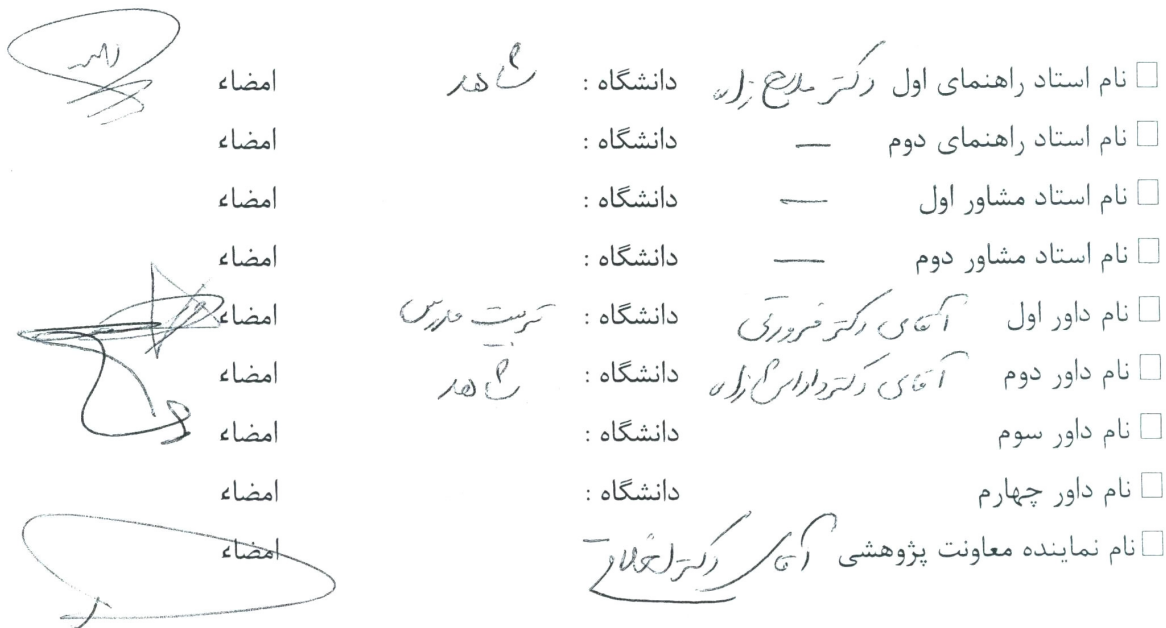 نام استاد راهنمای اول دکتر ملاح زاده دانشگاه : شاهد امضاء
نام استاد راهنمای دوم — دانشگاه : امضاء
نام استاد مشاور اول — دانشگاه : امضاء
نام استاد مشاور دوم — دانشگاه : امضاء
نام داور اول آقای دکتر دانشگاه : تربیت مدرس امضاء
نام داور دوم آقای دکتر دانشگاه : شاهد امضاء
نام داور سوم دانشگاه : امضاء
نام داور چهارم دانشگاه : امضاء
نام نماینده معاونت پژوهشی آقای دکتر امضاء